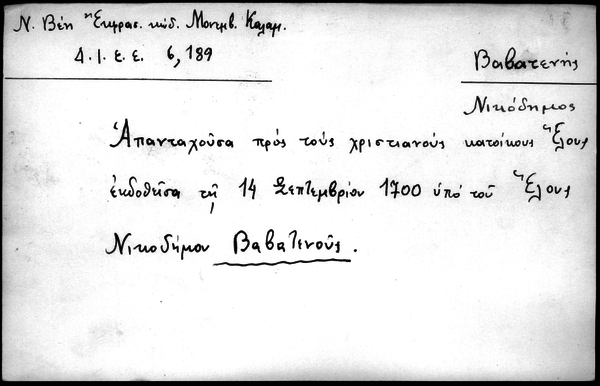 Ν. Βέη Ἔκφρασ. κώδ. Μονεμβ. Καλαμ.
Δ.Ι.Ε.Ε. 6, 189
Βαβατενής
Νικόδημος
Ἀπανταχοῦσα πρός τούς χριστιανούς κατοίκους Ἕλους
ἐκδοθεῖσα τῇ 14 Σεπτεμβρίου 1700 ὑπό τοῦ Ἕλους
Νικοδήμου Βαβατενοῦς.